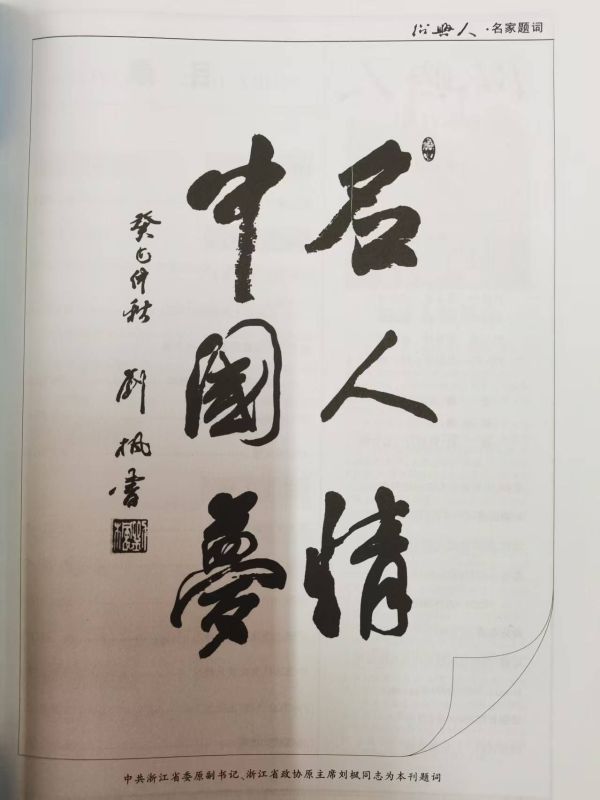 人·名家题词
名人情
中國夢
癸巳仲秋 刘枫書
中共浙江省委原副书记、浙江省政协原主席刘枫同志为本刊题词